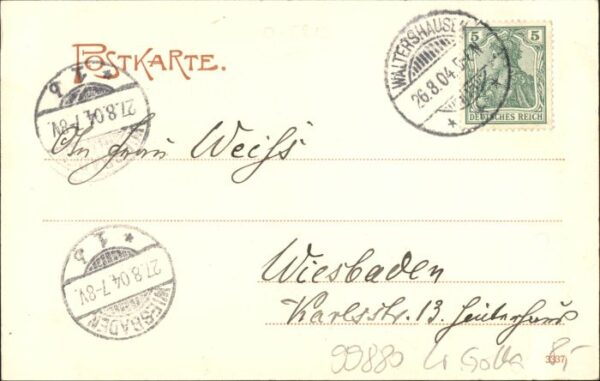 POSTKARTE.
WALTERSHAUSEN
26.8.04.
5 5
DEUTSCHES REICH
* 1 b
27.8.04.7-8V.
An Frau Weiss
* 1 b
27.8.04.7-8V.
WIESBADEN
Wiesbaden
Karlsstr. 13.
99880 Gotha 8,-
3337